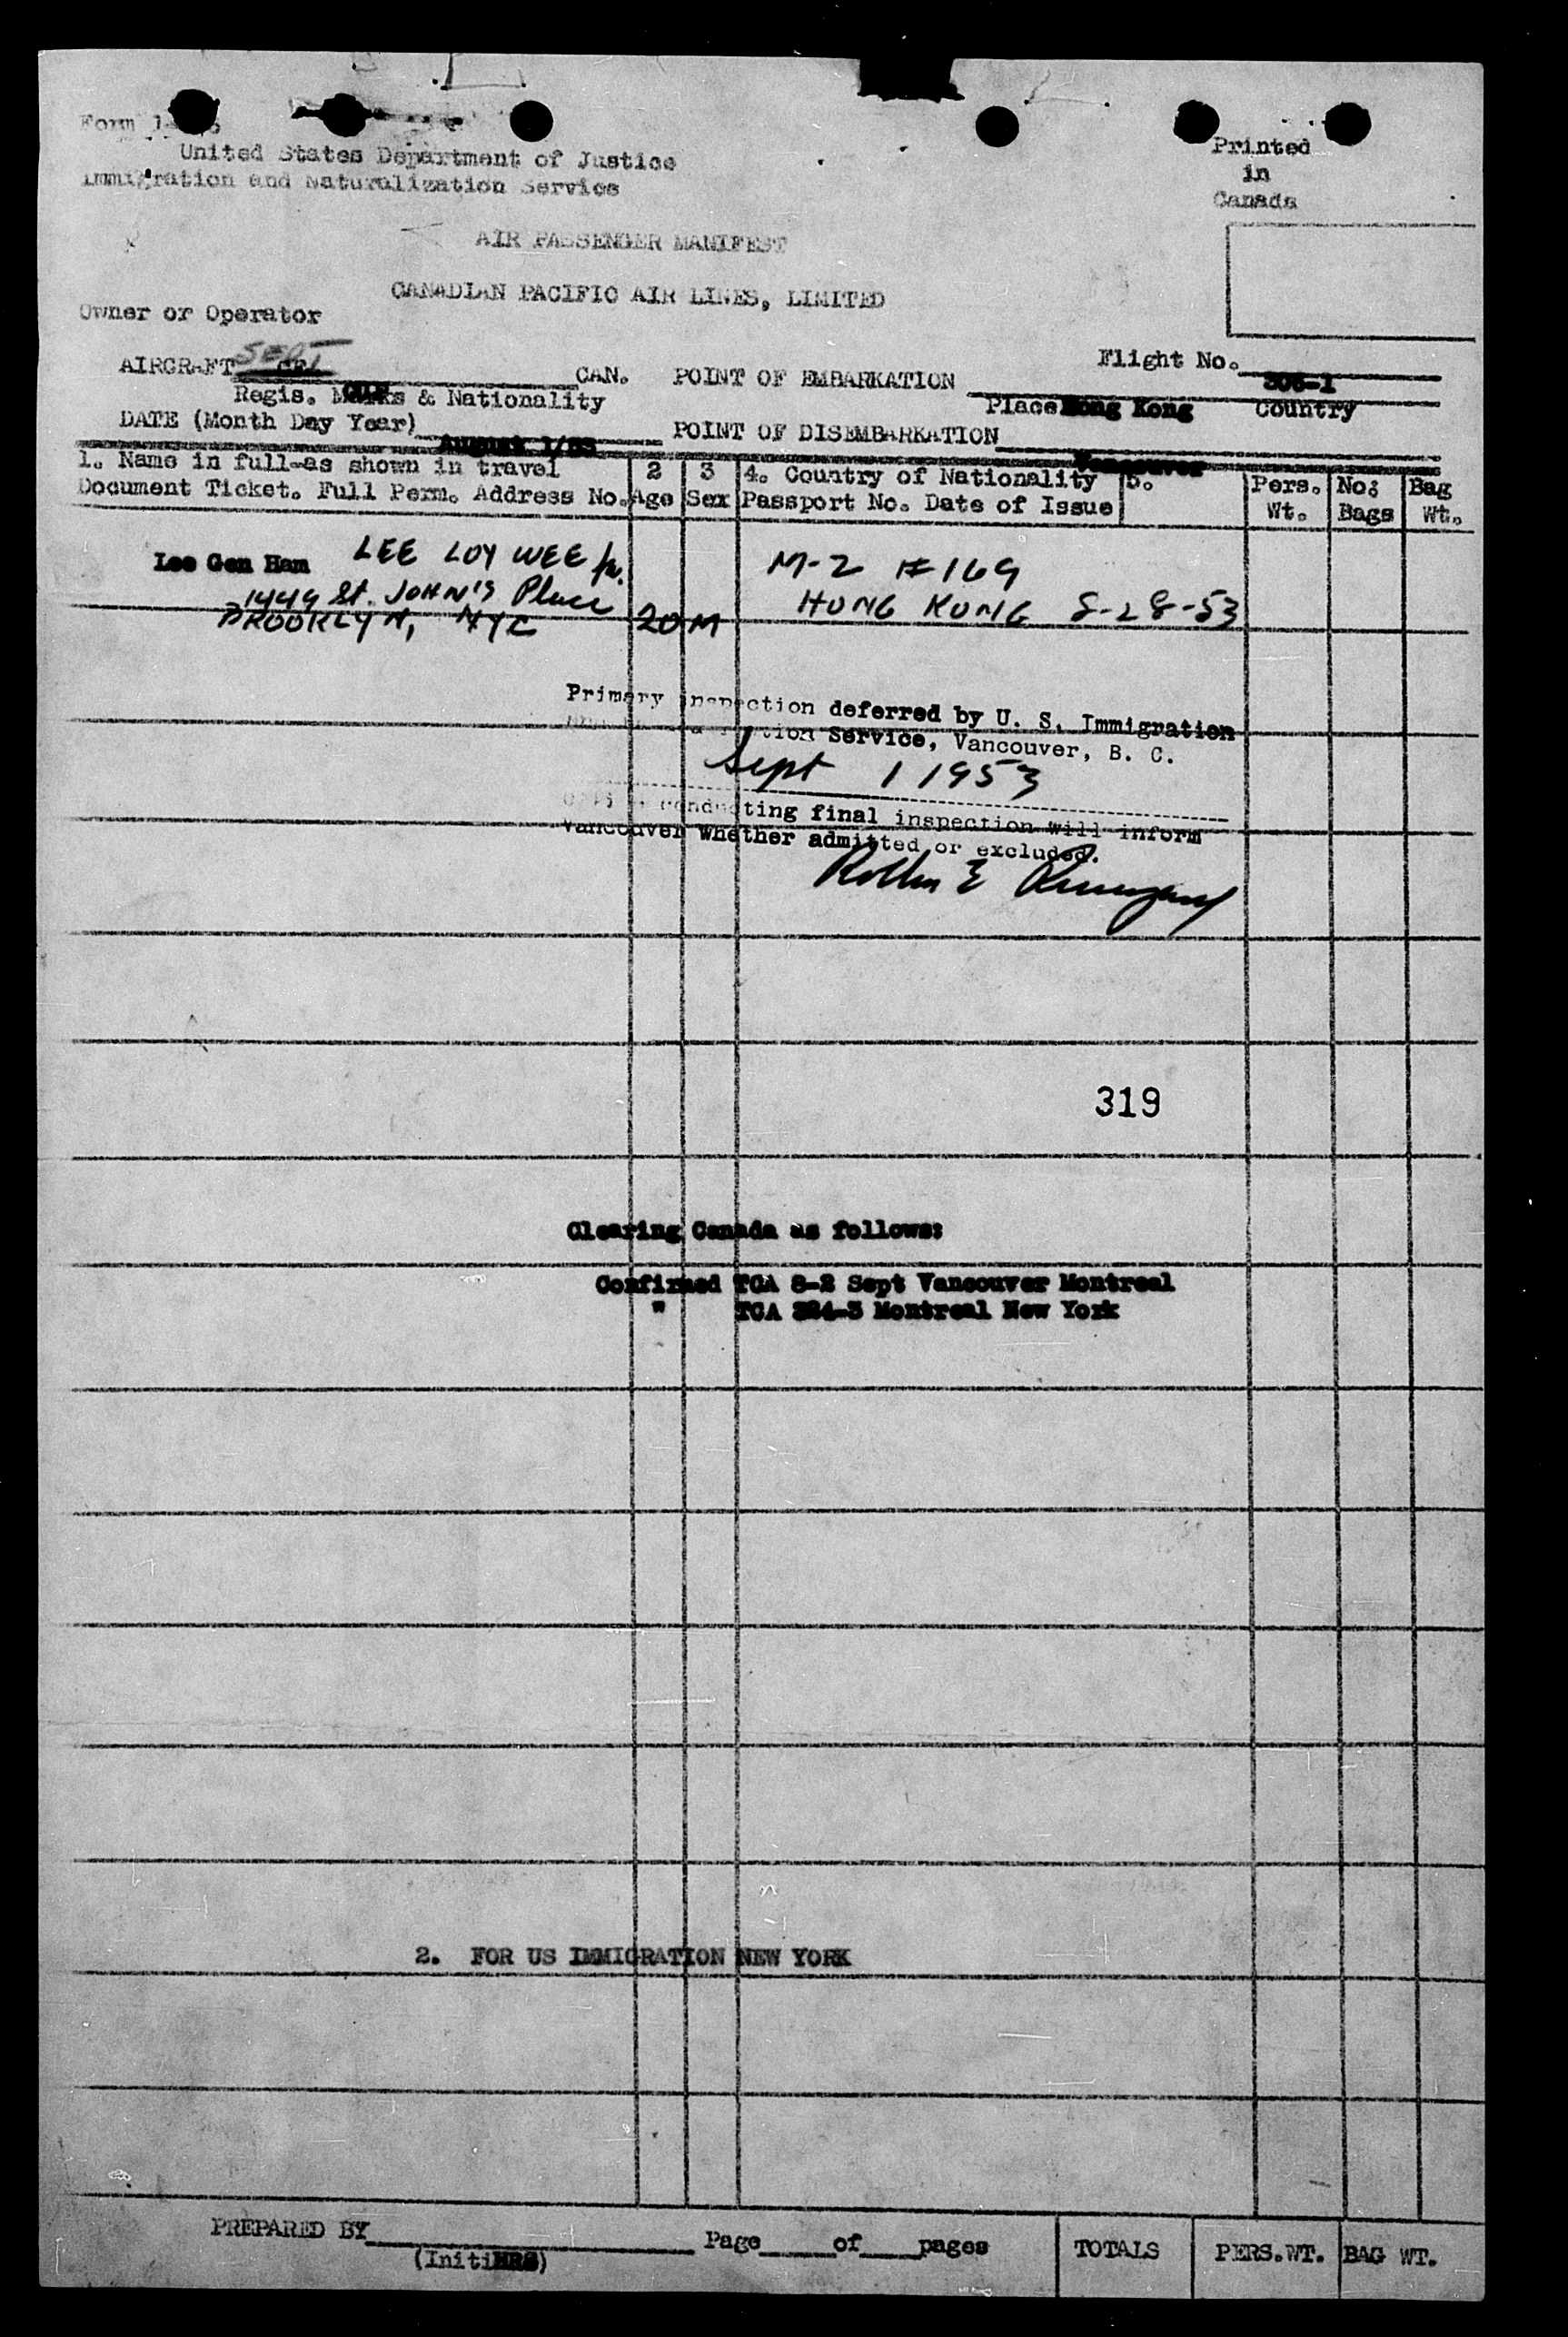 Form I-
United States Department of Justice
Immigration and Naturalization Service
Printed
in
Canada
AIR PASSENGER MANIFEST
CANADIAN PACIFIC AIR LINES, LIMITED
Owner or Operator
SEPT
AIRCRAFT CF CAN. POINT OF EMBARKATION Flight No. 306-1
Regis. Marks & Nationality Place Hong Kong Country
DATE (Month Day Year) August 1/53 POINT OF DISEMBARKATION Vancouver
1. Name in full-as shown in travel 2 3 4. Country of Nationality 5. Pers. No; Bag
Document Ticket. Full Perm. Address No. Age Sex Passport No. Date of Issue Wt. Bags Wt.
Lee Gen Ham LEE LOY WEE M-2 #169
1449 St. JOHN'S Place HONG KONG 8-28-53
BROOKLYN, NYC 20 M
Primary inspection deferred by U. S. Immigration
Service, Vancouver, B. C.
Sept 1 1953
conducting final inspection will inform
Vancouver whether admitted or excluded.
319
Clearing Canada as follows:
Confirmed TCA 8-2 Sept Vancouver Montreal
" TCA 324-3 Montreal New York
2. FOR US IMMIGRATION NEW YORK
PREPARED BY Page of pages TOTALS PERS.WT. BAG WT.